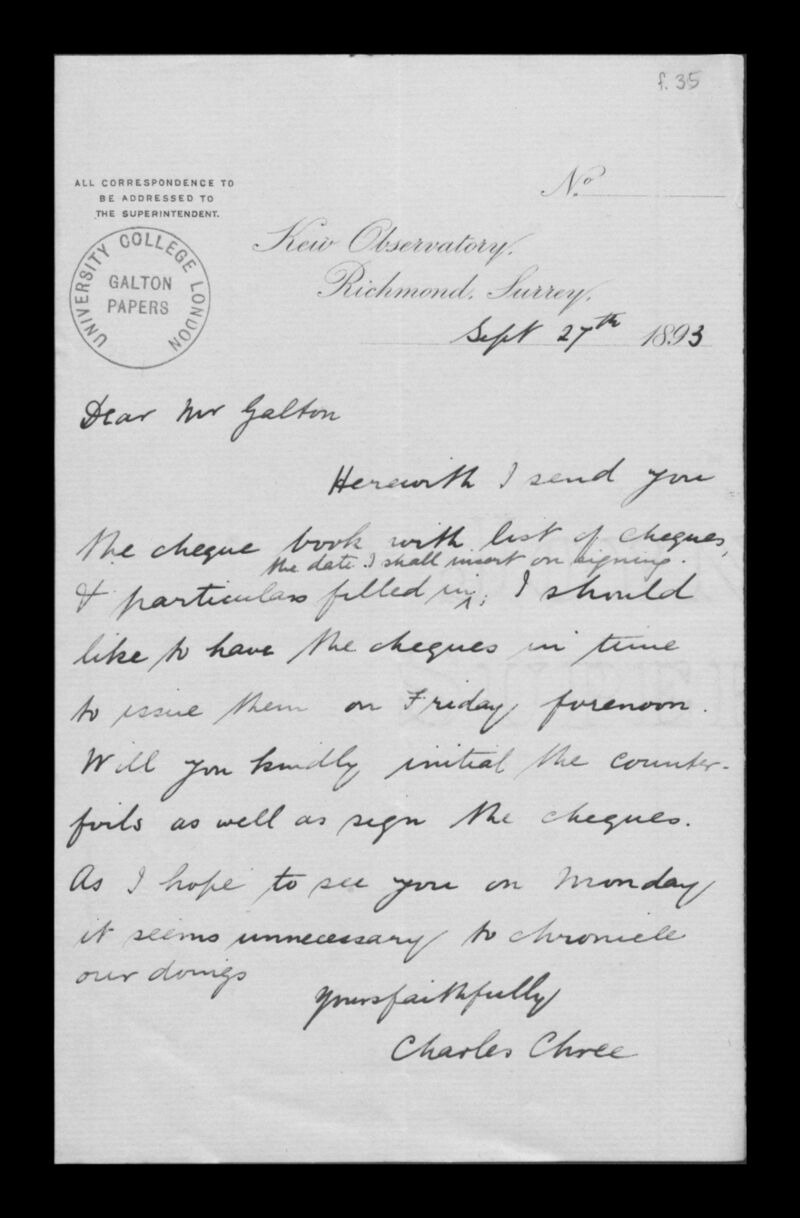 f. 35
ALL CORRESPONDENCE TO
BE ADDRESSED TO
THE SUPERINTENDENT.
No
UNIVERSITY COLLEGE LONDON
GALTON
PAPERS
Kew Observatory,
Richmond, Surrey,
Sept 27th 1893
Dear Mr Galton
Herewith I send you
the cheque book with list of cheques,
the date I shall insert on signing.
& particulars filled in; I should
like to have the cheques in time
to issue them on Friday forenoon.
Will you kindly initial the counter-
foils as well as sign the cheques.
As I hope to see you on Monday
it seems unnecessary to chronicle
our doings
Yours faithfully
Charles Chree